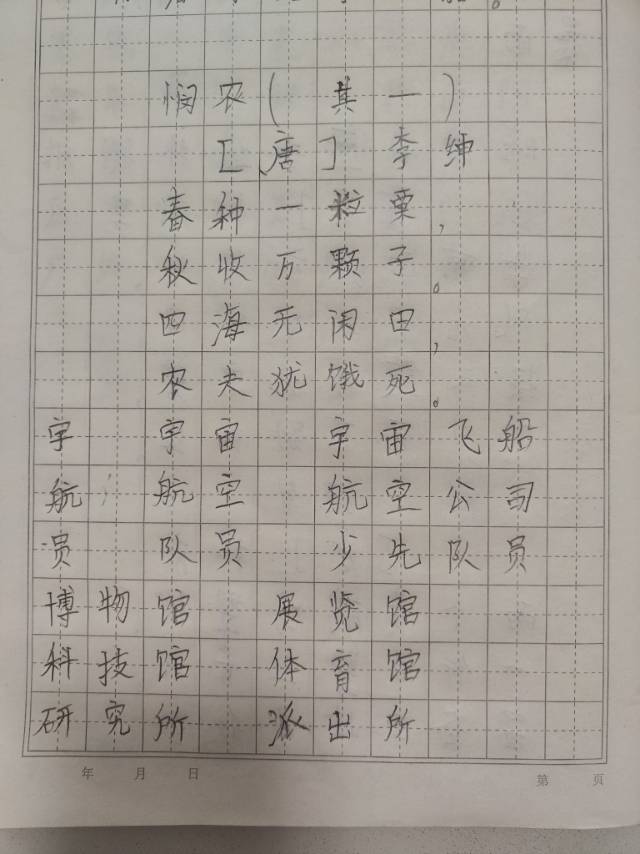 悯农(其一)
[唐]李绅
春种一粒粟,
秋收万颗子。
四海无闲田,
农夫犹饿死。
宇 宇宙 宇宙飞船
航 航空 航空公司
员 队员 少先队员
博物馆 展览馆
科技馆 体育馆
研究所 派出所
年 月 日 第 页